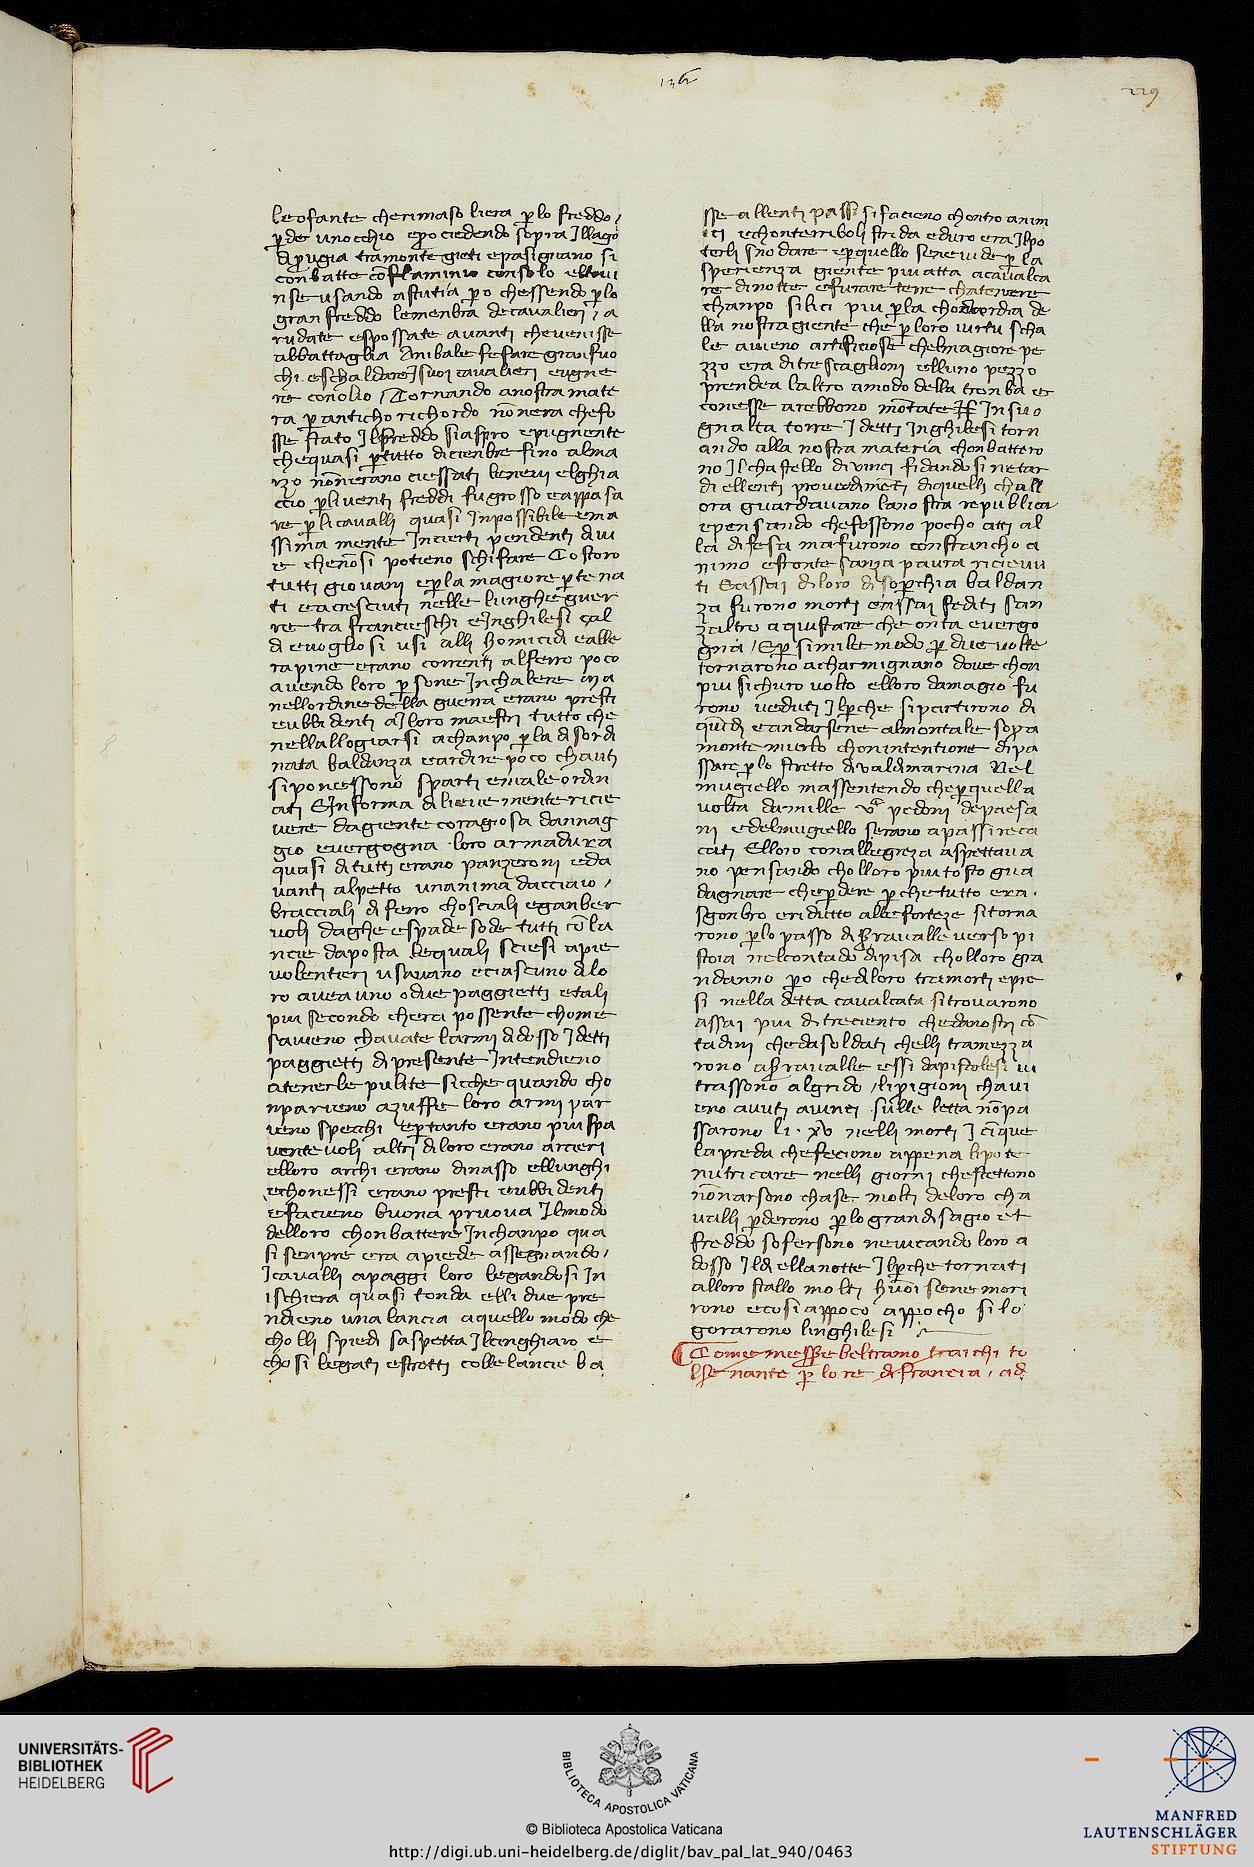 136
229
leofante cherimaso liera p̲ lo freddo /
p̲de unocchio ep̲o ciedendo sopra Jllago
dip̲ugia tramonte gieti epasignano si
conbatte cō flaminio consolo eltoui
nse usando astutia p̲o chessendo p̲ lo
gran freddo lemenbra decavalieri / a
rudate espossate avanti che venisse
abbattaglia Anibale fe fare gran fuo
chi eschaldare J suoi cavalieri eugne
re conolio / Tornando anostra mate
ra p̲ anticho richordo nōnera chefo
sse stato Jlfreddo siaspro epugnente
chequasi p̲tutto dicienbre fino alma
rzo nōnerano ciessati lenevi elghia
ccio p̲liventi freddi fu grosso eappasa
re p̲ li cavalli quasi Inpossibile ema
ssima mente Incierti pendenti di vi
e chenōsi potieno schifare Costoro
tutti giovani ep̲ la magiore p̲te na
ti eacresciuti nelle lunghe guer
re tra francieschi eInghilesi cal
di evogliosi usi alli homicidi ealle
rapine erano correnti alferro poco
avendo loro p̲sone Inchalere ma
nellordine della guerra erano presti
eubbidenti a J loro maestri tutto che
nellallogiarsi achanpo p̲ la disordi
nata baldanza eardire poco chauti
siponessono sparti emale ordin
ati EInforma di lieve mente ricie
vere dagiente coragiosa dannag
gio evergogna . loro armadura
quasi ditutti erano panzeroni eda
vanti alpetto unanima dacciaio /
bracciali di ferro chosciali eganber
voli daghe espade sode tutti cō la
ncie daposta lequali sciesi apie
volentieri usavano eciascuno dilo
ro avea uno odue paggietti etali
piu secondo chera possente chome
savieno chavate larmi di dosso J detti
paggietti di presente Intendieno
atenerle pulite sicche quando cho
nparieno azuffe loro armi par
ieno specchi ep̲ tanto erano piu spa
vente voli altri di loro erano arcieri
elloro archi erano dinasso ellunghi
echonessi erano presti eubbidenti
efacieno buona pruova Jlmodo
delloro chonbattere Inchanpo qua
si senpre era apiede assegnando /
J cavalli apaggi loro legandosi In
ischiera quasi tonda elli due pre
ndieno una lancia aquello modo che
cholli spiedi saspetta Jlcinghiaro e
chosi legati estretti colle lancie ba
sse allenti passi si facieno chontro animi
ici echonterriboli strida eduro era Jlpo
terli snodare ep̲quello senevide p̲ la
sperienza giente piu atta acavalca
re dinotte efurare terre chatenere
chanpo silici piu p̲la chodardia de
lla nostra giente che p̲ loro virtu scha
le avieno artificiose chelmagiore pe
zzo era ditre scaglioni elluno pezzo
prendea laltro amodo della tronba et
conesse arebbono mōtate In suo
gnalta torre J detti Inghilesi torn
ando alla nostra materia chonbattero
no Jlchastello divinci fidandosi netar
di ellenti provedimēti diquelli chall
ora guardavano lanostra republica
epensando chefossono pocho atti al
la difesa ma furono confrancho a
nimo efronte sanza paura ricievu
ti Eassai di loro disop̲chia baldan
za furono morti eassai fediti san
zaltro aquistare che onta evergo
gna / Ep̲ simile modo p̲ due volte
tornarono acharmignano dove chon
piu sichuro volto elloro damagio fu
rono veduti Jlp̲che si partirono di
quīdi eandarsene almontale sopra
monte murlo chonintentione dipa
ssare p̲ lo stretto divaldimarina Nel
mugiello massentendo chep̲quella
volta damille pedoni depaesa
ni edelmugiello serano apassi reca
cati Elloro conallegreza aspettava
no pensando cholloro piu tosto gua
dagnare chep̲dere p̲ chetutto era .
sgonbro eridutto alle forteze sitorna
rono p̲lo passo diserravalle verso pi
stoia nelcontado dipisa cholloro gra
ndanno p̲o chediloro tramorti epre
si nella detta cavalcata sitrovarono
assai piu ditreciento chedanostri cō
tadini chedasoldati chelli tramezza
rono aserravalle essi dapistolesi vi
trassono algrido / lip̲igioni chavi
eno avuti avinci sulle letta nōpa
ssarono li . xv nelli morti J cīque
lapreda chefeciono appena lipote
nutricare nelli giorni chestettono
nōnarsono chase molti deloro cha
valli p̲derono p̲lo grandisagio et
freddo sofersono nevicando loro a
dosso Jldi ellanotte Jlp̲che tornati
alloro stallo molti huōi sene mori
rono ecosi appoco appocho silo
gorarono linghilesi
Come messere beltramo traichi to
lse nante p̲ lo re difrancia / ad
UNIVERSITÄTS-
BIBLIOTHEK
HEIDELBERG
BIBLIOTECA APOSTOLICA VATICANA
© Biblioteca Apostolica Vaticana
http://digi.ub.uni-heidelberg.de/diglit/bav_pal_lat_940/0463
MANFRED
LAUTENSCHLÄGER
STIFTUNG